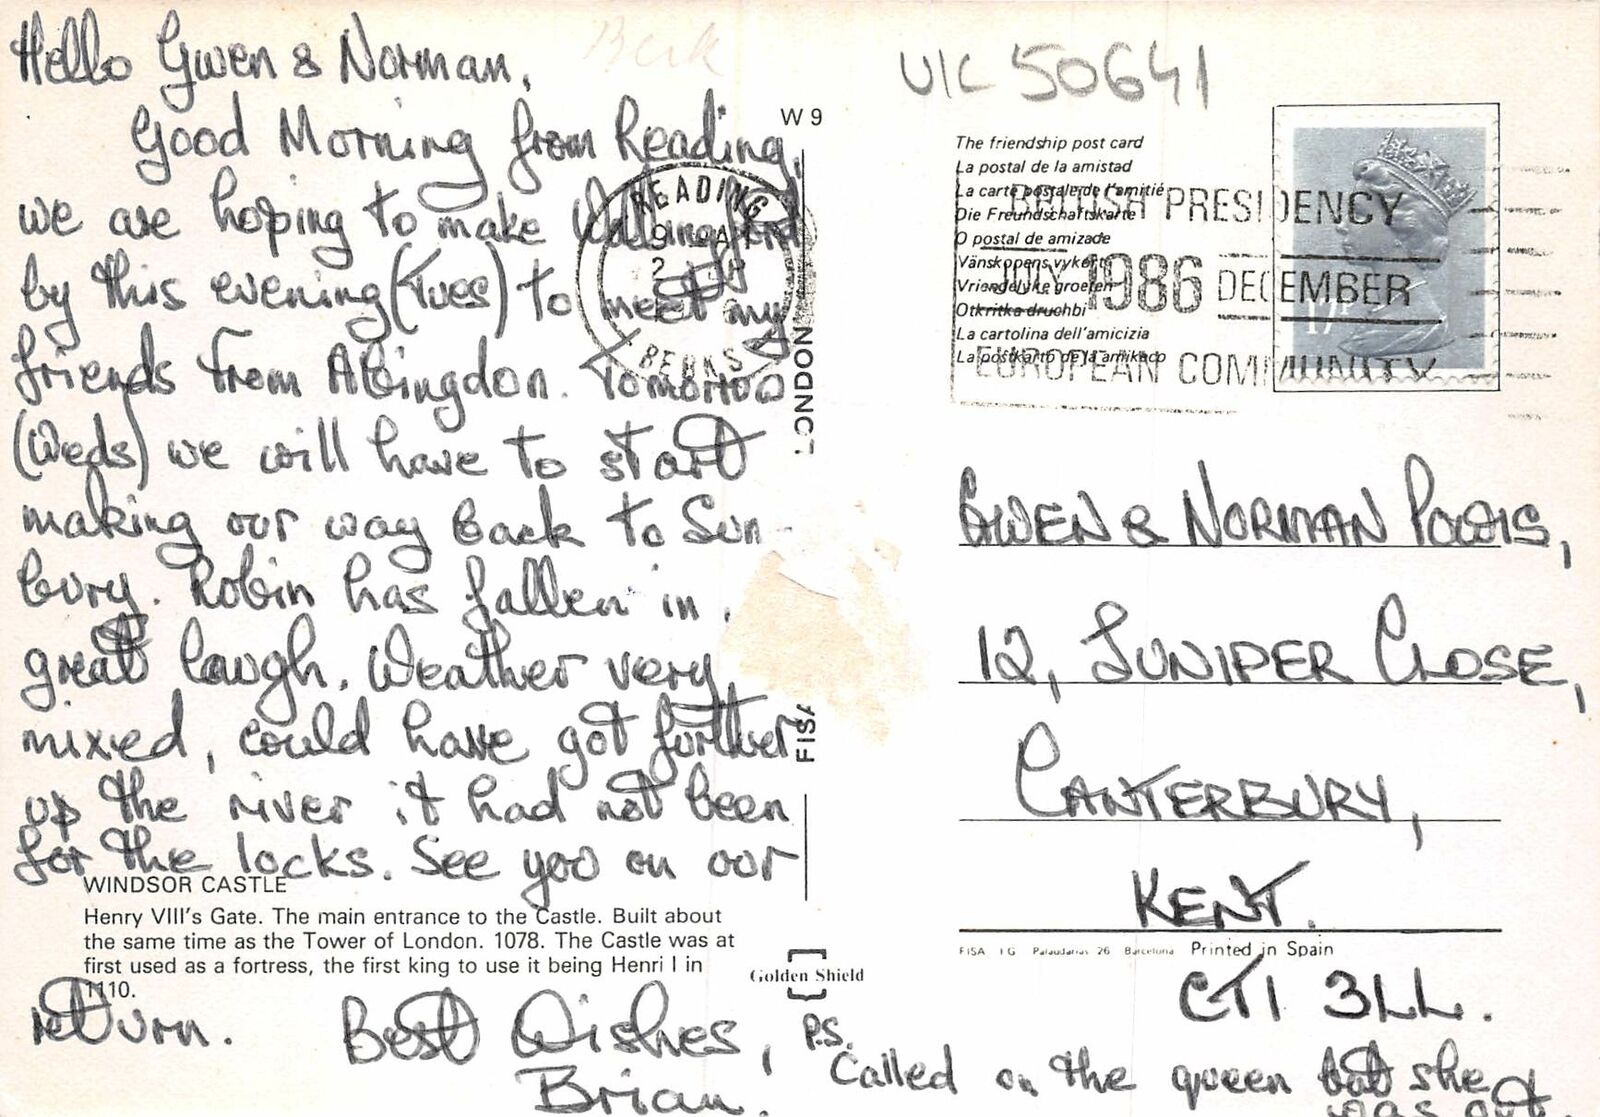 Hello Gwen & Norman,
Good Morning from Reading,
we are hoping to make Wallingford
by this evening (Tues) to meet my
friends from Abingdon. Tomorrow
(Weds) we will have to start
making our way back to Sun
bury. Robin has fallen in,
great laugh. Weather very
mixed, could have got further
up the river it had not been
for the locks. See you on our
return.
Best Wishes,
Brian.
WINDSOR CASTLE
Henry VIII's Gate. The main entrance to the Castle. Built about
the same time as the Tower of London. 1078. The Castle was at
first used as a fortress, the first king to use it being Henri I in
1110.
Berk
W 9
LONDON
FISA
Golden Shield
READING
BERKS
UK 50641
The friendship post card
La postal de la amistad
La carte postale de l'amitié
Die Freundschaftskarte
O postal de amizade
Vänskopens vykort
Vriendelyke groeten
Otkritka druchbi
La cartolina dell'amicizia
La postkarto de la amikaco
BRITISH PRESIDENCY
JULY 1986 DECEMBER
EUROPEAN COMMUNITY
17P
GWEN & NORMAN POWIS,
12, JUNIPER CLOSE,
CANTERBURY,
KENT.
CT1 3LL.
FISA I G Palaudarias 26 Barcelona Printed in Spain
P.S.
Called on the queen but she
was out